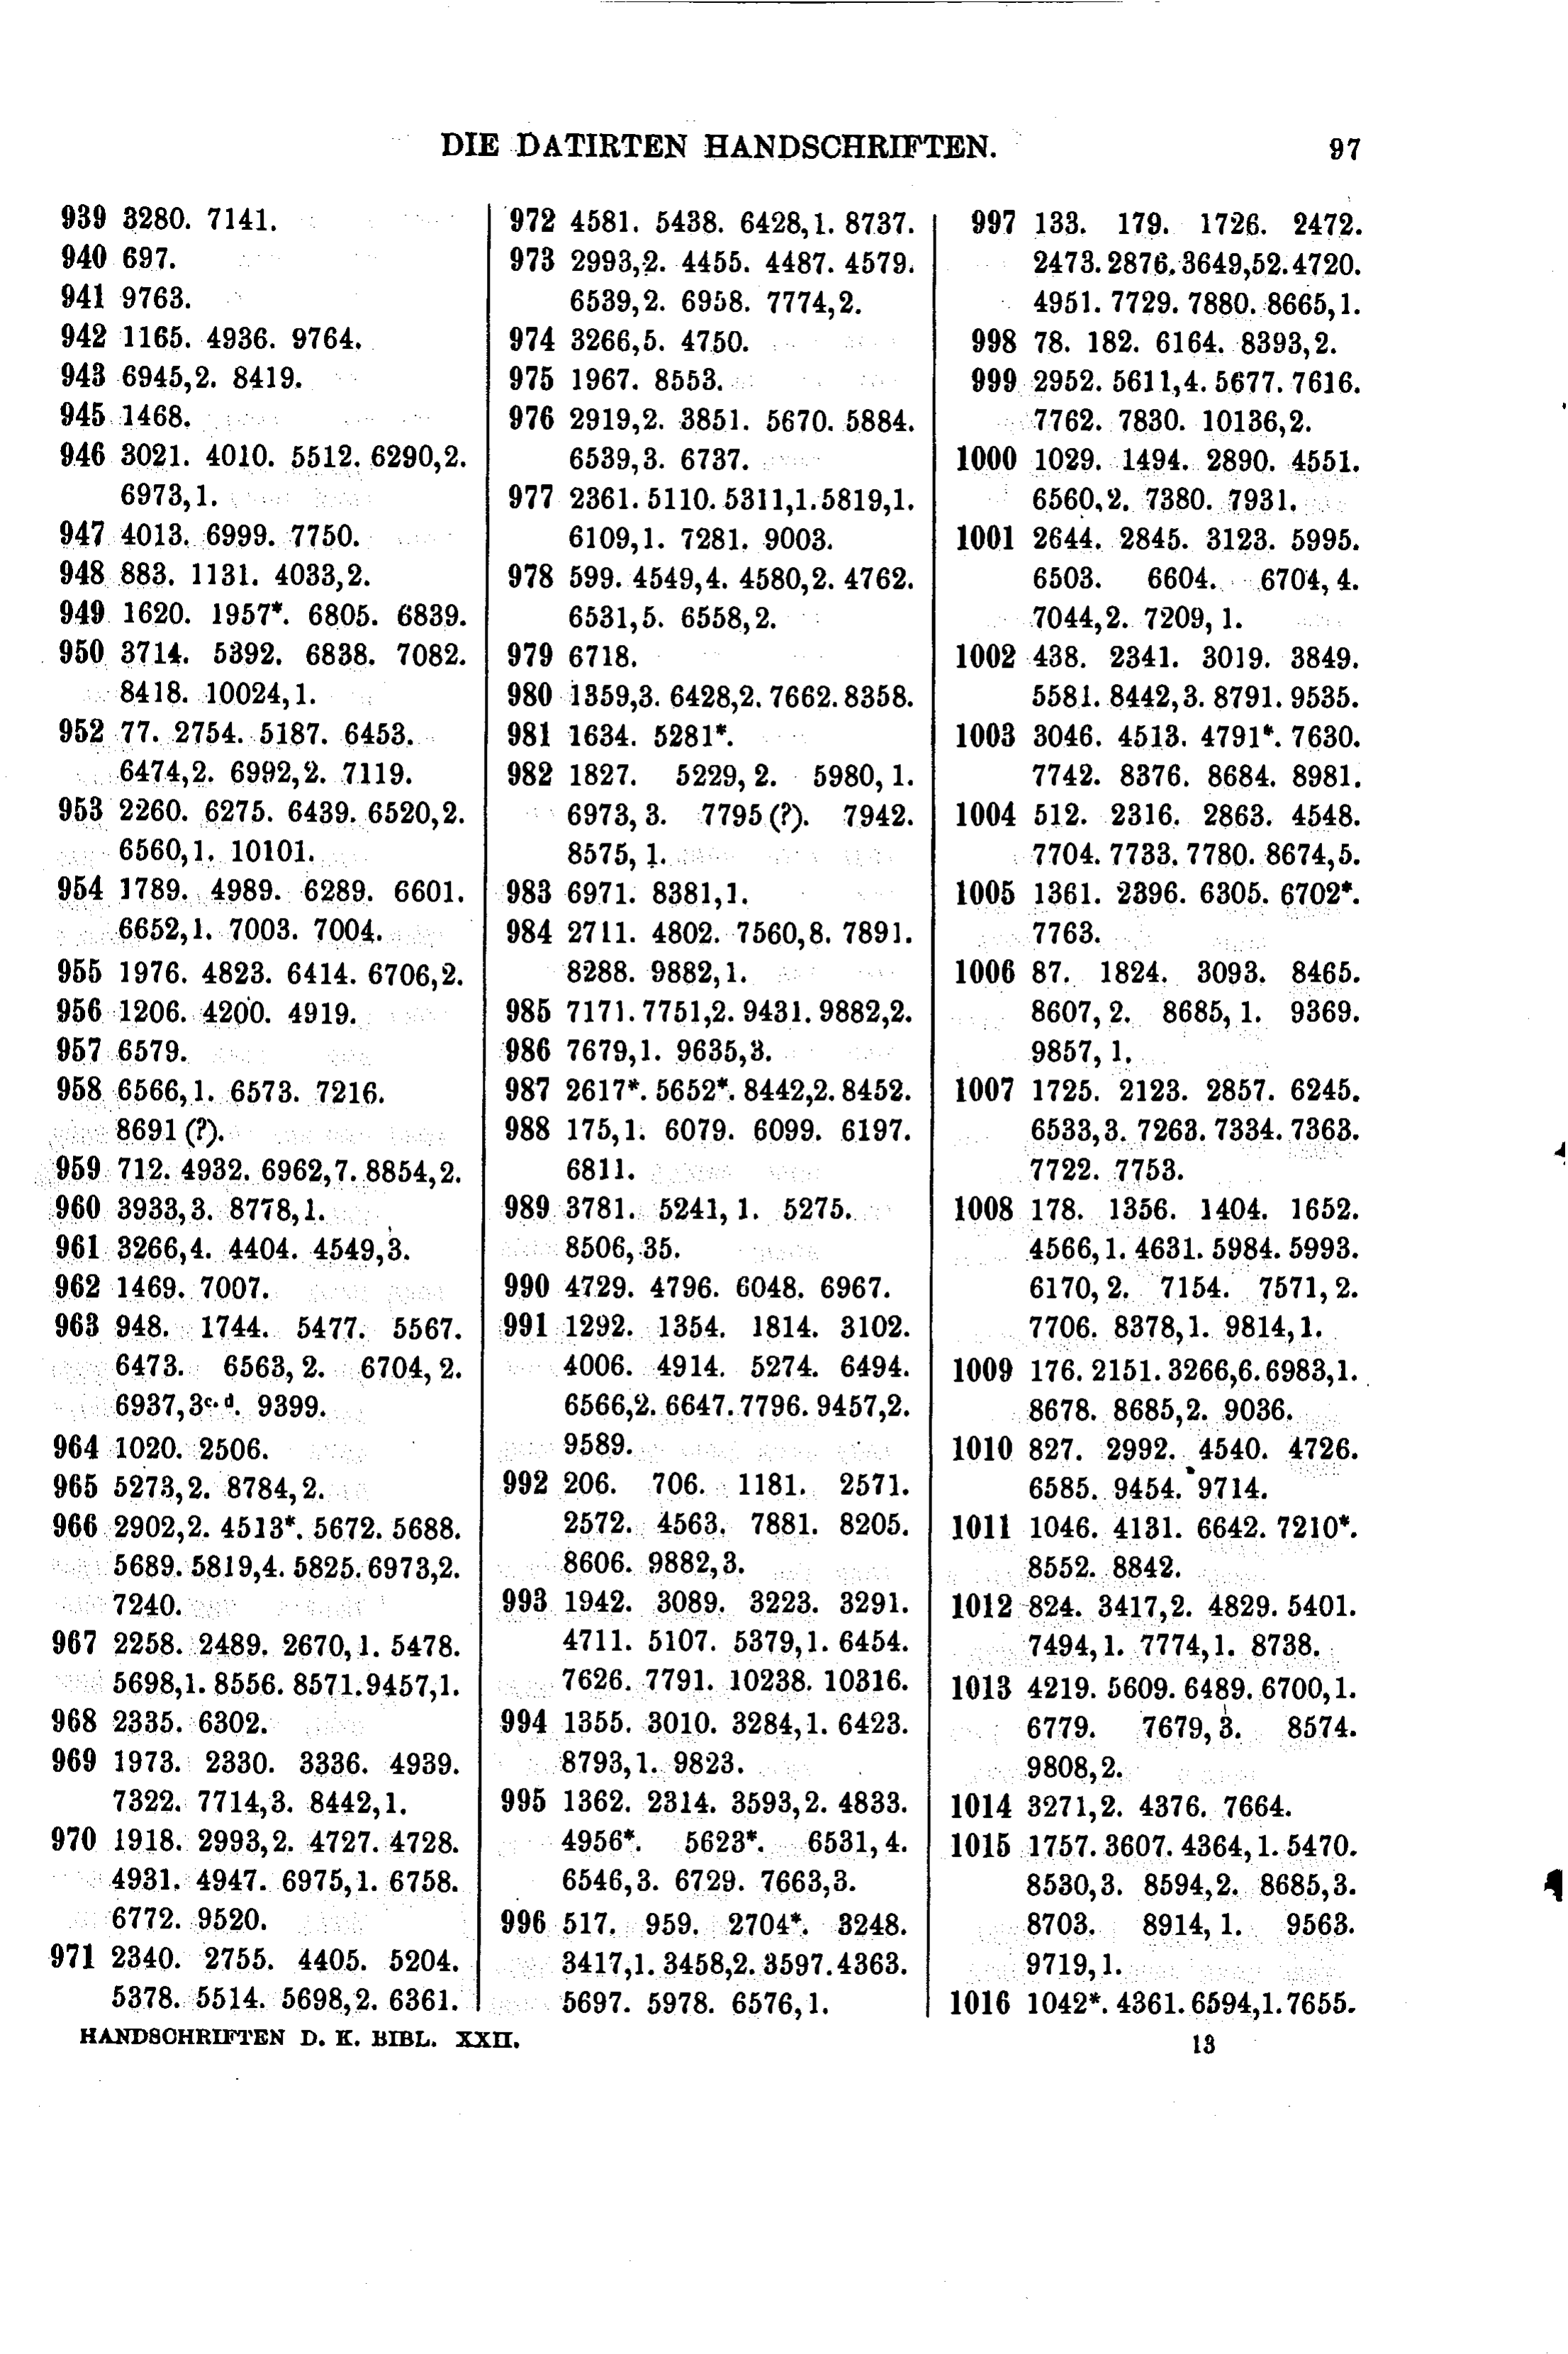 DIE DATIRTEN HANDSCHRIFTEN. 97
939 3280. 7141.
940 697.
941 9763.
942 1165. 4936. 9764.
943 6945,2. 8419.
945 1468.
946 3021. 4010. 5512. 6290,2.
6973,1.
947 4013. 6999. 7750.
948 883. 1131. 4033,2.
949 1620. 1957*. 6805. 6839.
950 3714. 5392. 6838. 7082.
8418. 10024,1.
952 77. 2754. 5187. 6453.
6474,2. 6992,2. 7119.
953 2260. 6275. 6439. 6520,2.
6560,1. 10101.
954 1789. 4989. 6289. 6601.
6652,1. 7003. 7004.
955 1976. 4823. 6414. 6706,2.
956 1206. 4200. 4919.
957 6579.
958 6566,1. 6573. 7216.
8691 (?).
959 712. 4932. 6962,7. 8854,2.
960 3933,3. 8778,1.
961 3266,4. 4404. 4549,3.
962 1469. 7007.
963 948. 1744. 5477. 5567.
6473. 6563, 2. 6704, 2.
6937,3c. d. 9399.
964 1020. 2506.
965 5273,2. 8784,2.
966 2902,2. 4513*. 5672. 5688.
5689. 5819,4. 5825. 6973,2.
7240.
967 2258. 2489. 2670,1. 5478.
5698,1. 8556. 8571. 9457,1.
968 2335. 6302.
969 1973. 2330. 3336. 4939.
7322. 7714,3. 8442,1.
970 1918. 2993,2. 4727. 4728.
4931. 4947. 6975,1. 6758.
6772. 9520.
971 2340. 2755. 4405. 5204.
5378. 5514. 5698,2. 6361.
972 4581. 5438. 6428,1. 8737.
973 2993,2. 4455. 4487. 4579.
6539,2. 6958. 7774,2.
974 3266,5. 4750.
975 1967. 8553.
976 2919,2. 3851. 5670. 5884.
6539,3. 6737.
977 2361. 5110. 5311,1. 5819,1.
6109,1. 7281. 9003.
978 599. 4549,4. 4580,2. 4762.
6531,5. 6558,2.
979 6718.
980 1359,3. 6428,2. 7662. 8358.
981 1634. 5281*.
982 1827. 5229, 2. 5980, 1.
6973, 3. 7795 (?). 7942.
8575, 1.
983 6971. 8381,1.
984 2711. 4802. 7560,8. 7891.
8288. 9882,1.
985 7171. 7751,2. 9431. 9882,2.
986 7679,1. 9635,3.
987 2617*. 5652*. 8442,2. 8452.
988 175,1. 6079. 6099. 6197.
6811.
989 3781. 5241, 1. 5275.
8506, 35.
990 4729. 4796. 6048. 6967.
991 1292. 1354. 1814. 3102.
4006. 4914. 5274. 6494.
6566,2. 6647. 7796. 9457,2.
9589.
992 206. 706. 1181. 2571.
2572. 4563. 7881. 8205.
8606. 9882,3.
993 1942. 3089. 3223. 3291.
4711. 5107. 5379,1. 6454.
7626. 7791. 10238. 10316.
994 1355. 3010. 3284,1. 6423.
8793,1. 9823.
995 1362. 2314. 3593,2. 4833.
4956*. 5623*. 6531, 4.
6546,3. 6729. 7663,3.
996 517. 959. 2704*. 3248.
3417,1. 3458,2. 3597. 4363.
5697. 5978. 6576,1.
997 133. 179. 1726. 2472.
2473. 2876. 3649,52. 4720.
4951. 7729. 7880. 8665,1.
998 78. 182. 6164. 8393,2.
999 2952. 5611,4. 5677. 7616.
7762. 7830. 10136,2.
1000 1029. 1494. 2890. 4551.
6560,2. 7380. 7931.
1001 2644. 2845. 3123. 5995.
6503. 6604. 6704, 4.
7044,2. 7209, 1.
1002 438. 2341. 3019. 3849.
5581. 8442,3. 8791. 9535.
1003 3046. 4513. 4791*. 7630.
7742. 8376. 8684. 8981.
1004 512. 2316. 2863. 4548.
7704. 7733. 7780. 8674,5.
1005 1361. 2396. 6305. 6702*.
7763.
1006 87. 1824. 3093. 8465.
8607, 2. 8685, 1. 9369.
9857, 1.
1007 1725. 2123. 2857. 6245.
6533,3. 7263. 7334. 7363.
7722. 7753.
1008 178. 1356. 1404. 1652.
4566,1. 4631. 5984. 5993.
6170, 2. 7154. 7571, 2.
7706. 8378,1. 9814,1.
1009 176. 2151. 3266,6. 6983,1.
8678. 8685,2. 9036.
1010 827. 2992. 4540. 4726.
6585. 9454. 9714.
1011 1046. 4131. 6642. 7210*.
8552. 8842.
1012 824. 3417,2. 4829. 5401.
7494,1. 7774,1. 8738.
1013 4219. 5609. 6489. 6700,1.
6779. 7679, 3. 8574.
9808,2.
1014 3271,2. 4376. 7664.
1015 1757. 3607. 4364, 1. 5470.
8530,3. 8594,2. 8685,3.
8703. 8914, 1. 9563.
9719,1.
1016 1042*. 4361. 6594,1. 7655.
HANDSCHRIFTEN D. K. BIBL. XXII. 13